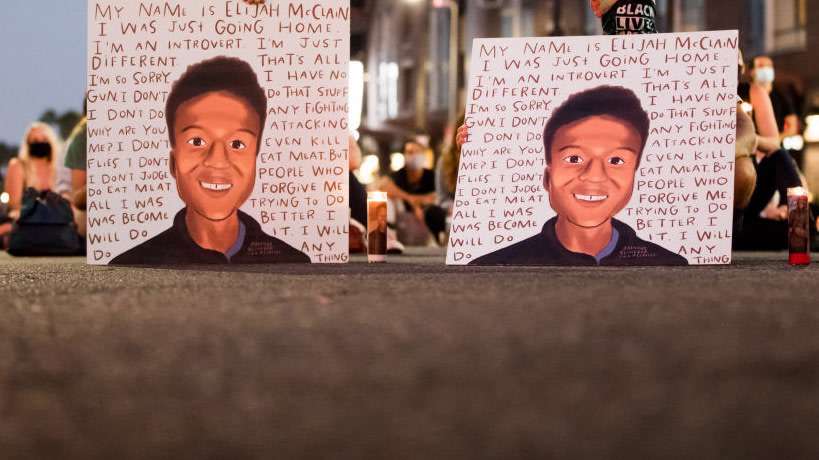 MY NAME IS ELIJAH MCCLAIN
I WAS JUST GOING HOME.
I'M AN INTROVERT. I'M JUST
DIFFERENT. THAT'S ALL.
I'M SO SORRY I HAVE NO
GUN. I DON'T DO THAT STUFF
I DON'T DO ANY FIGHTING
WHY ARE YOU ATTACKING
ME? I DON'T EVEN KILL
FLIES I DON'T EAT MEAT. BUT
I DON'T JUDGE PEOPLE WHO
DO EAT MEAT FORGIVE ME.
ALL I WAS TRYING TO DO
WAS BECOME BETTER I
WILL DO IT. I WILL
ANY
DO THING
BLACK
LIVES
MY NAME IS ELIJAH MCCLAIN
I WAS JUST GOING HOME.
I'M AN INTROVERT I'M JUST
DIFFERENT THAT'S ALL.
I'M SO SORRY I HAVE NO
GUN. I DON'T DO THAT STUFF
I DON'T DO ANY FIGHTING
WHY ARE YOU ATTACKING
ME? I DON'T EVEN KILL
FLIES I DON'T EAT MEAT. BUT
I DON'T JUDGE PEOPLE WHO
DO EAT MEAT FORGIVE ME.
ALL I WAS TRYING TO DO
WAS BECOME BETTER I
WILL DO IT. I WILL
ANY
DO THING